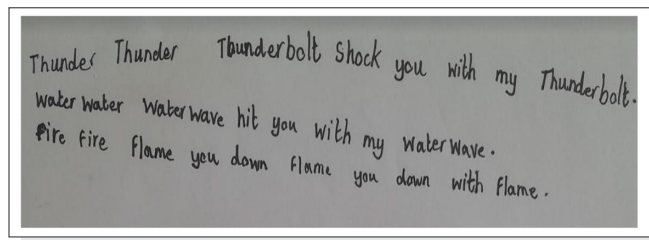 Thunder Thunder Thunderbolt Shock you with my Thunderbolt.
Water Water Waterwave hit you with my Waterwave.
Fire fire flame you down flame you down with flame.